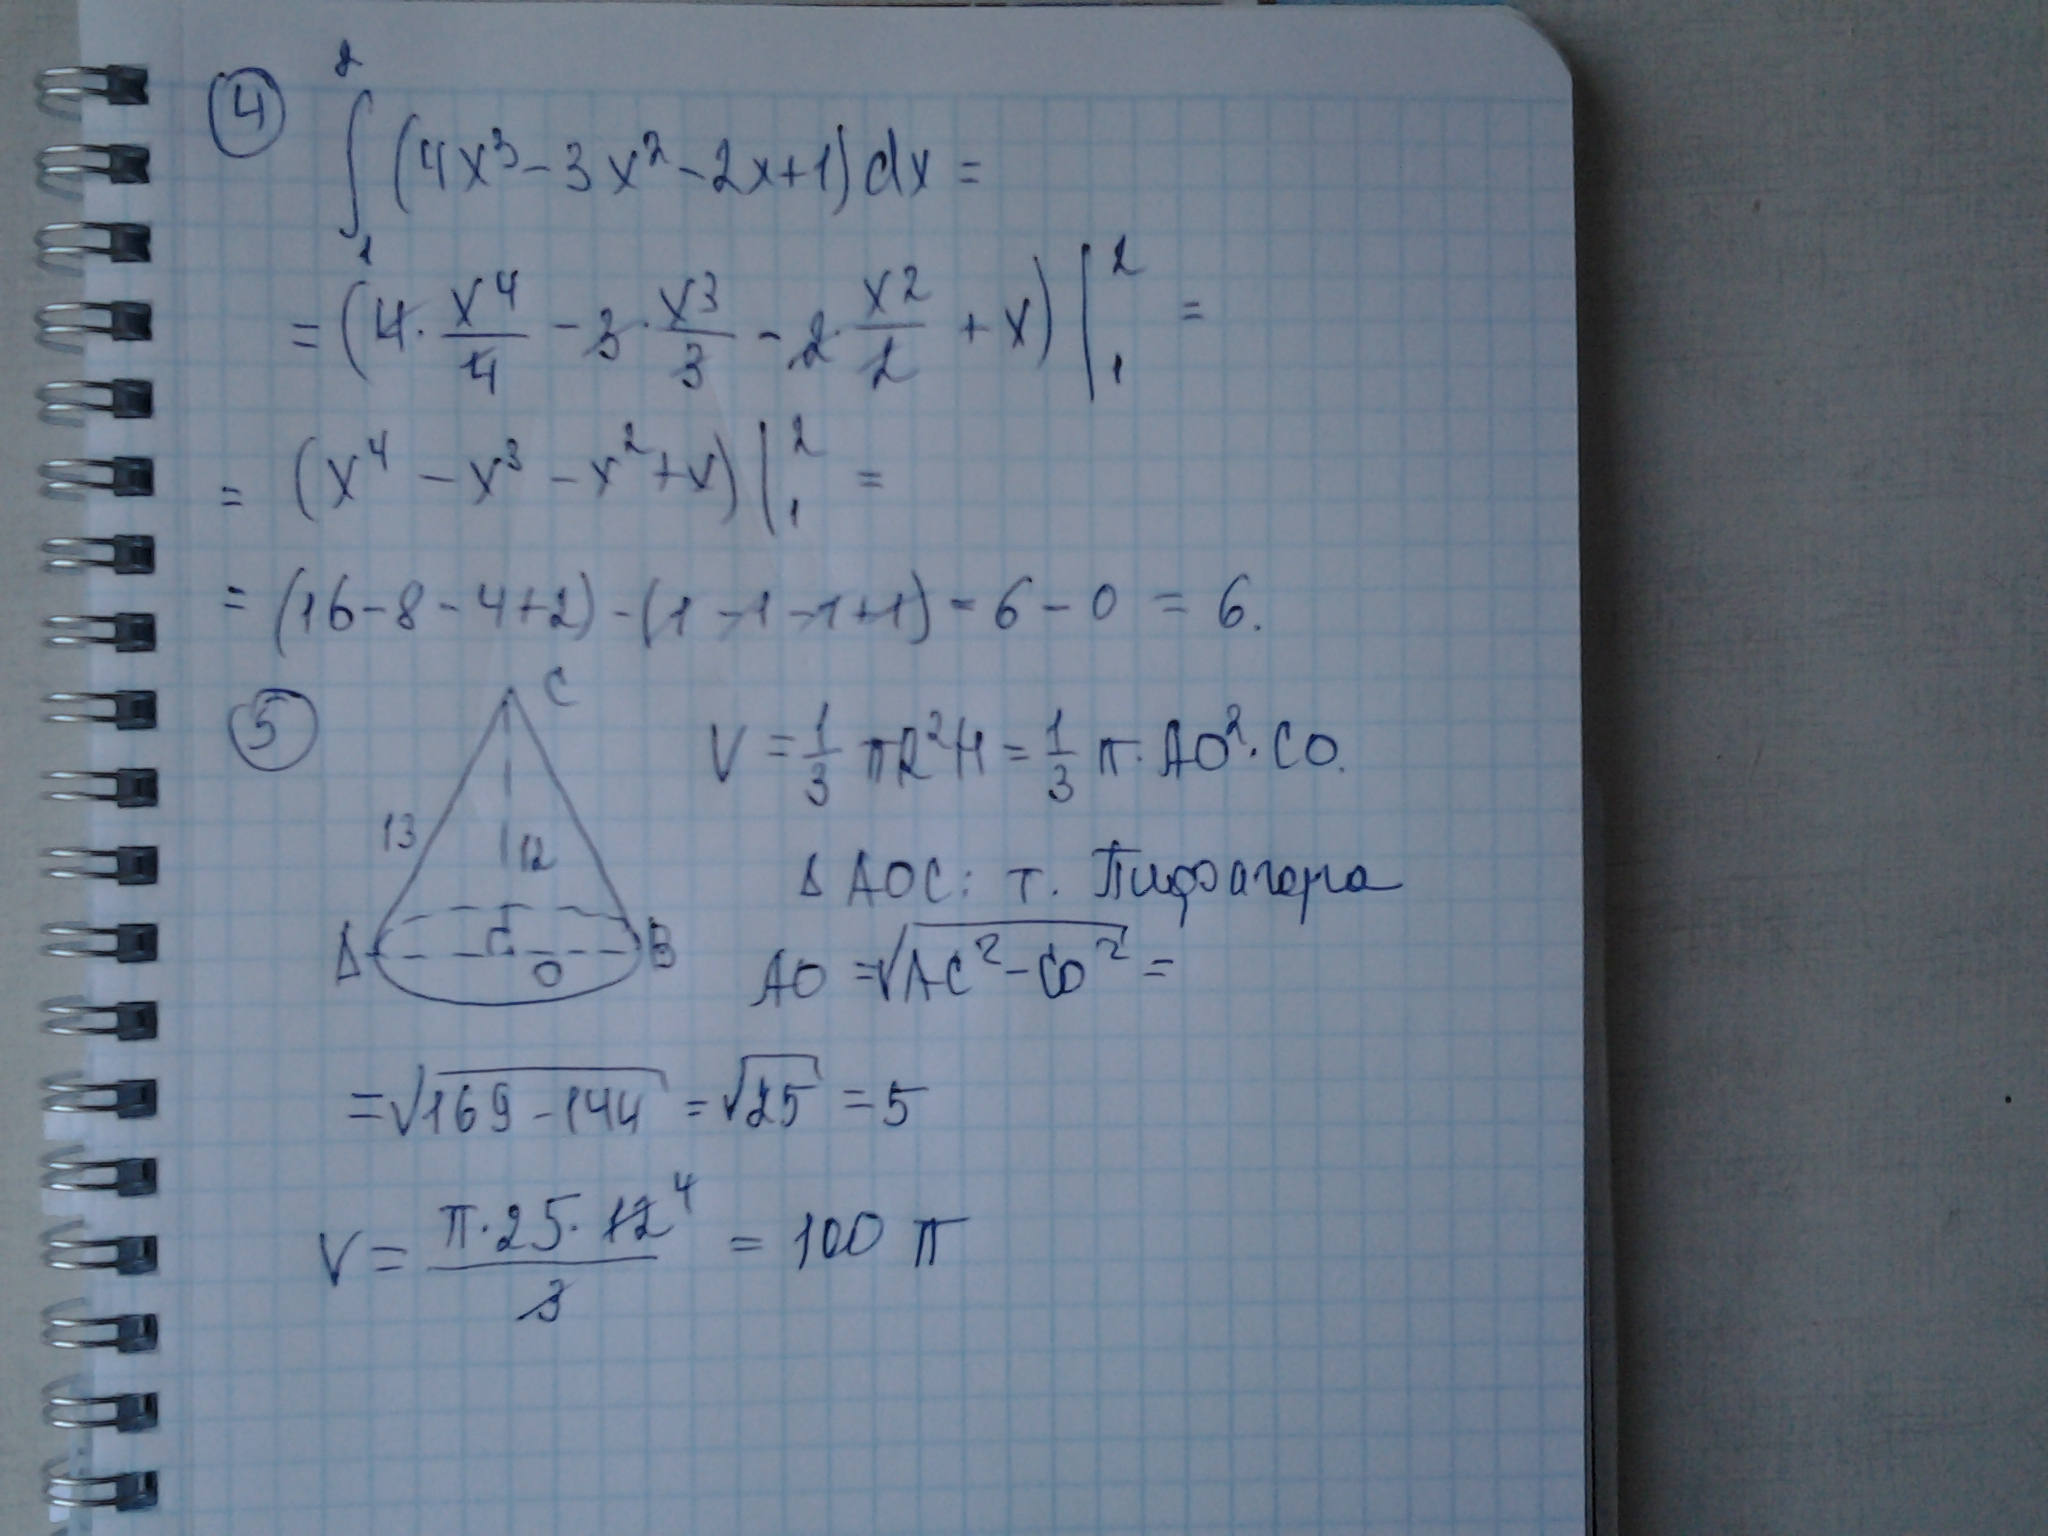 ④ ∫₁² (4x³ - 3x² - 2x + 1) dx =
= (4 · x⁴/4 - 3 · x³/3 - 2 · x²/2 + x) |₁² =
= (x⁴ - x³ - x² + x) |₁² =
= (16 - 8 - 4 + 2) - (1 - 1 - 1 + 1) = 6 - 0 = 6.
⑤ C
13
12
A
O
B
V = 1/3 πR²H = 1/3 π · AO² · CO.
Δ AOC: т. Пифагора
AO = √(AC² - CO²) =
= √(169 - 144) = √25 = 5
V = (π · 25 · 12⁴)/3 = 100 π